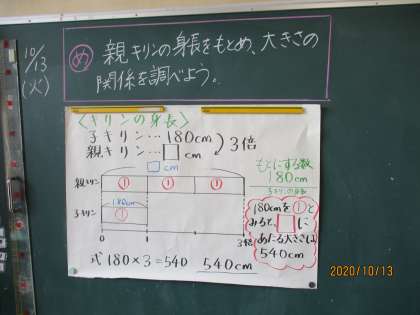 10/13
(火)
め 親キリンの身長をもとめ、大きさの
関係を調べよう。
<キリンの身長>
子キリン…180cm
親キリン…□cm
3倍
□cm
親キリン ① ① ①
180cm
子キリン ①
0 1 3倍
式 180×3=540 540cm
もとにする数
180cm
子キリンの身長
180cmを①と
みると、□に
あたる大きさは
540cm
2020/10/13